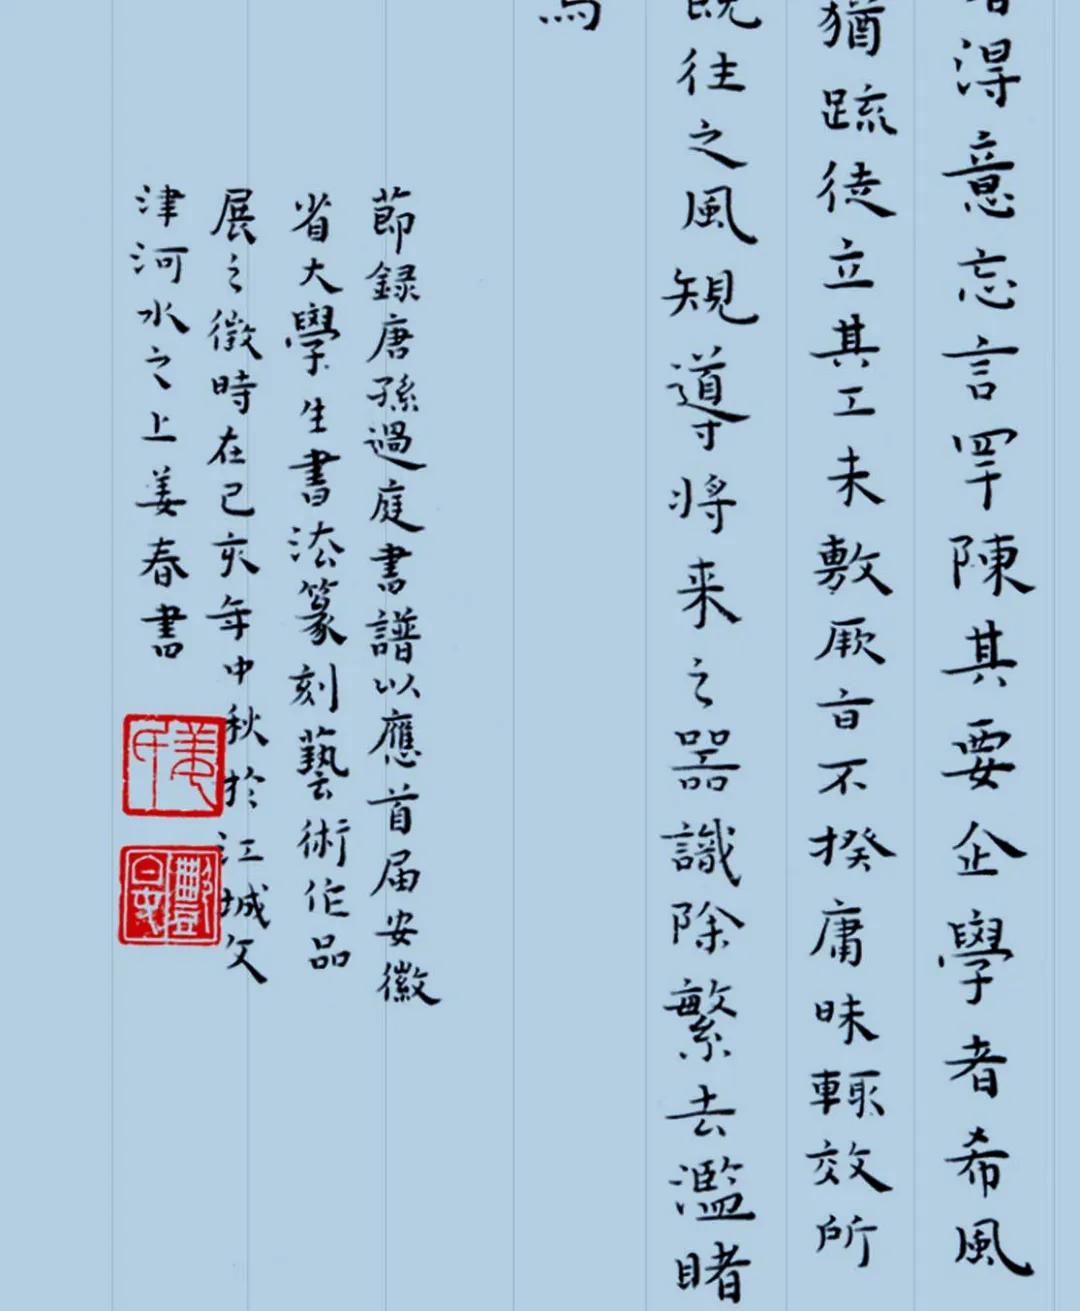 得意忘言罕陳其要企學者希風
猶疏徒立其工未敷厥旨不揆庸昧輒效所
既往之風規導將来之器識除繁去濫睹
焉
節録唐孫過庭書譜以應首届安徽
省大學生書法篆刻藝術作品
展之徵時在己亥年中秋於江城文
津河水之上姜春書
姜氏